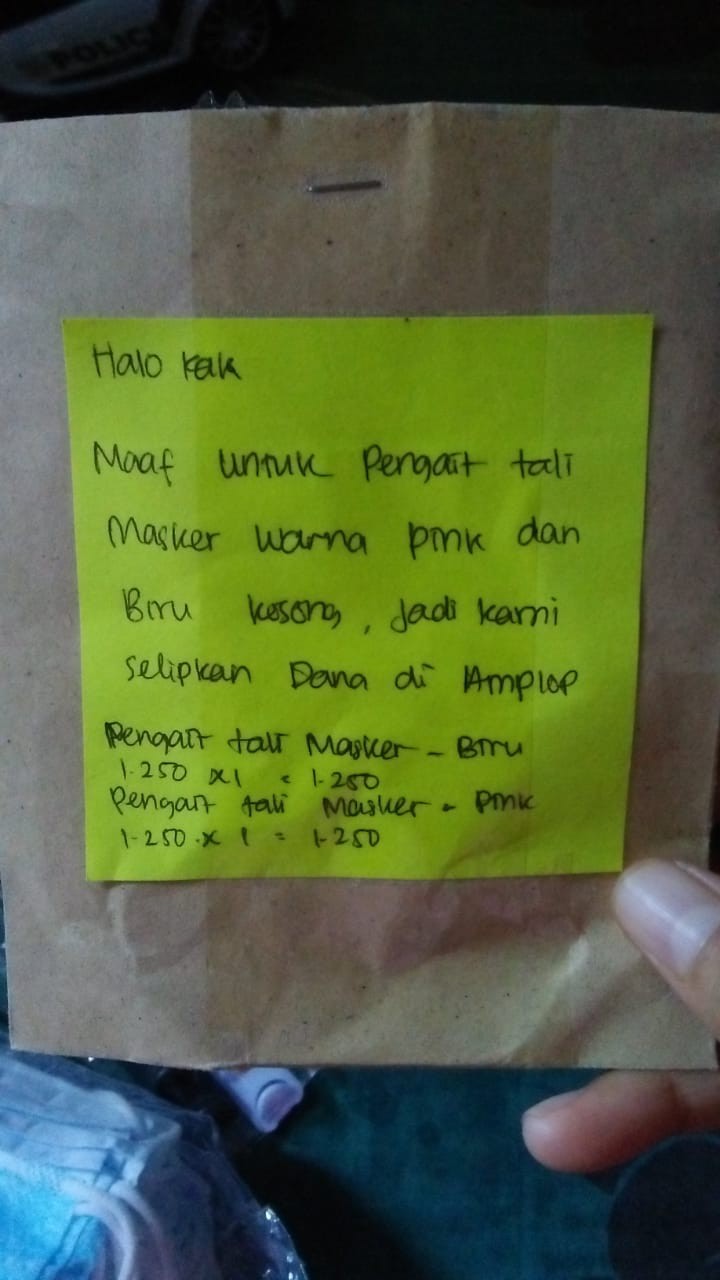 POLICE
Halo kak
Maaf untuk Pengait tali
Masker warna pink dan
Biru kosong, jadi kami
selipkan Dana di Amplop
Pengait tali Masker - Biru
1.250 x 1 = 1.250
Pengait tali Masker - Pink
1.250 x 1 = 1.250